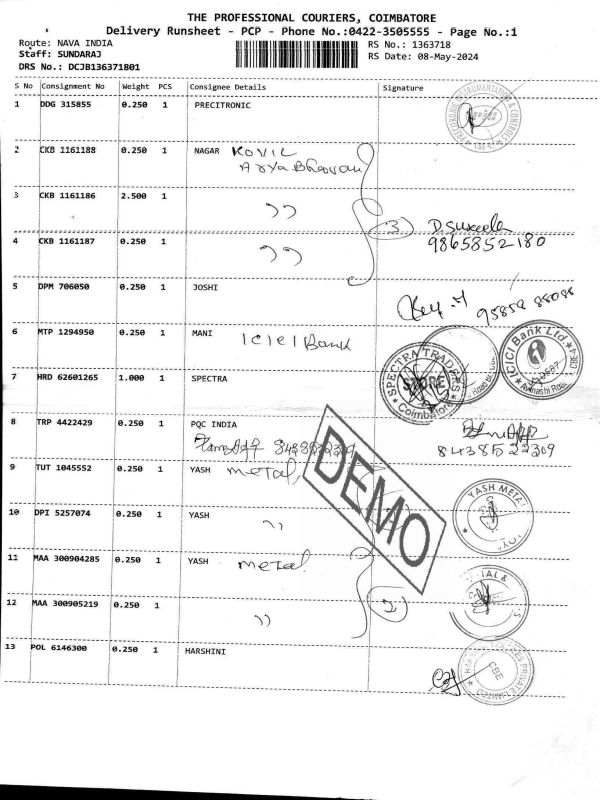 THE PROFESSIONAL COURIERS, COIMBATORE
Delivery Runsheet - PCP - Phone No.:0422-3505555 - Page No.:1
Route: NAVA INDIA
RS No.: 1363718
Staff: SUNDARAJ
RS Date: 08-May-2024
DRS No.: DCJB136371801
S No Consignment No Weight PCS Consignee Details Signature
1 DDG 315855 0.250 1 PRECITRONIC
2 CKB 1161188 0.250 1 NAGAR KOVIL
Arya Bhavan
3 CKB 1161186 2.500 1 ))
3 D. Suseela
4 CKB 1161187 0.250 1 )) 9865852180
5 DPM 706050 0.250 1 JOSHI
6 MTP 1294950 0.250 1 MANI ICICI Bank
ICICI Bank Ltd.
Avinashi Road
7 HRD 62601265 1.000 1 SPECTRA
SPECTRA TRADERS
STORE
Coimbatore
8 TRP 4422429 0.250 1 PQC INDIA
8438522309
9 TUT 1045552 0.250 1 YASH metal
DEMO
YASH METAL
10 DPI 5257074 0.250 1 YASH ))
11 MAA 300904285 0.250 1 YASH metal
12 MAA 300905219 0.250 1 ))
2
13 POL 6146300 0.250 1 HARSHINI
CBE
PRIVATE LIMITED